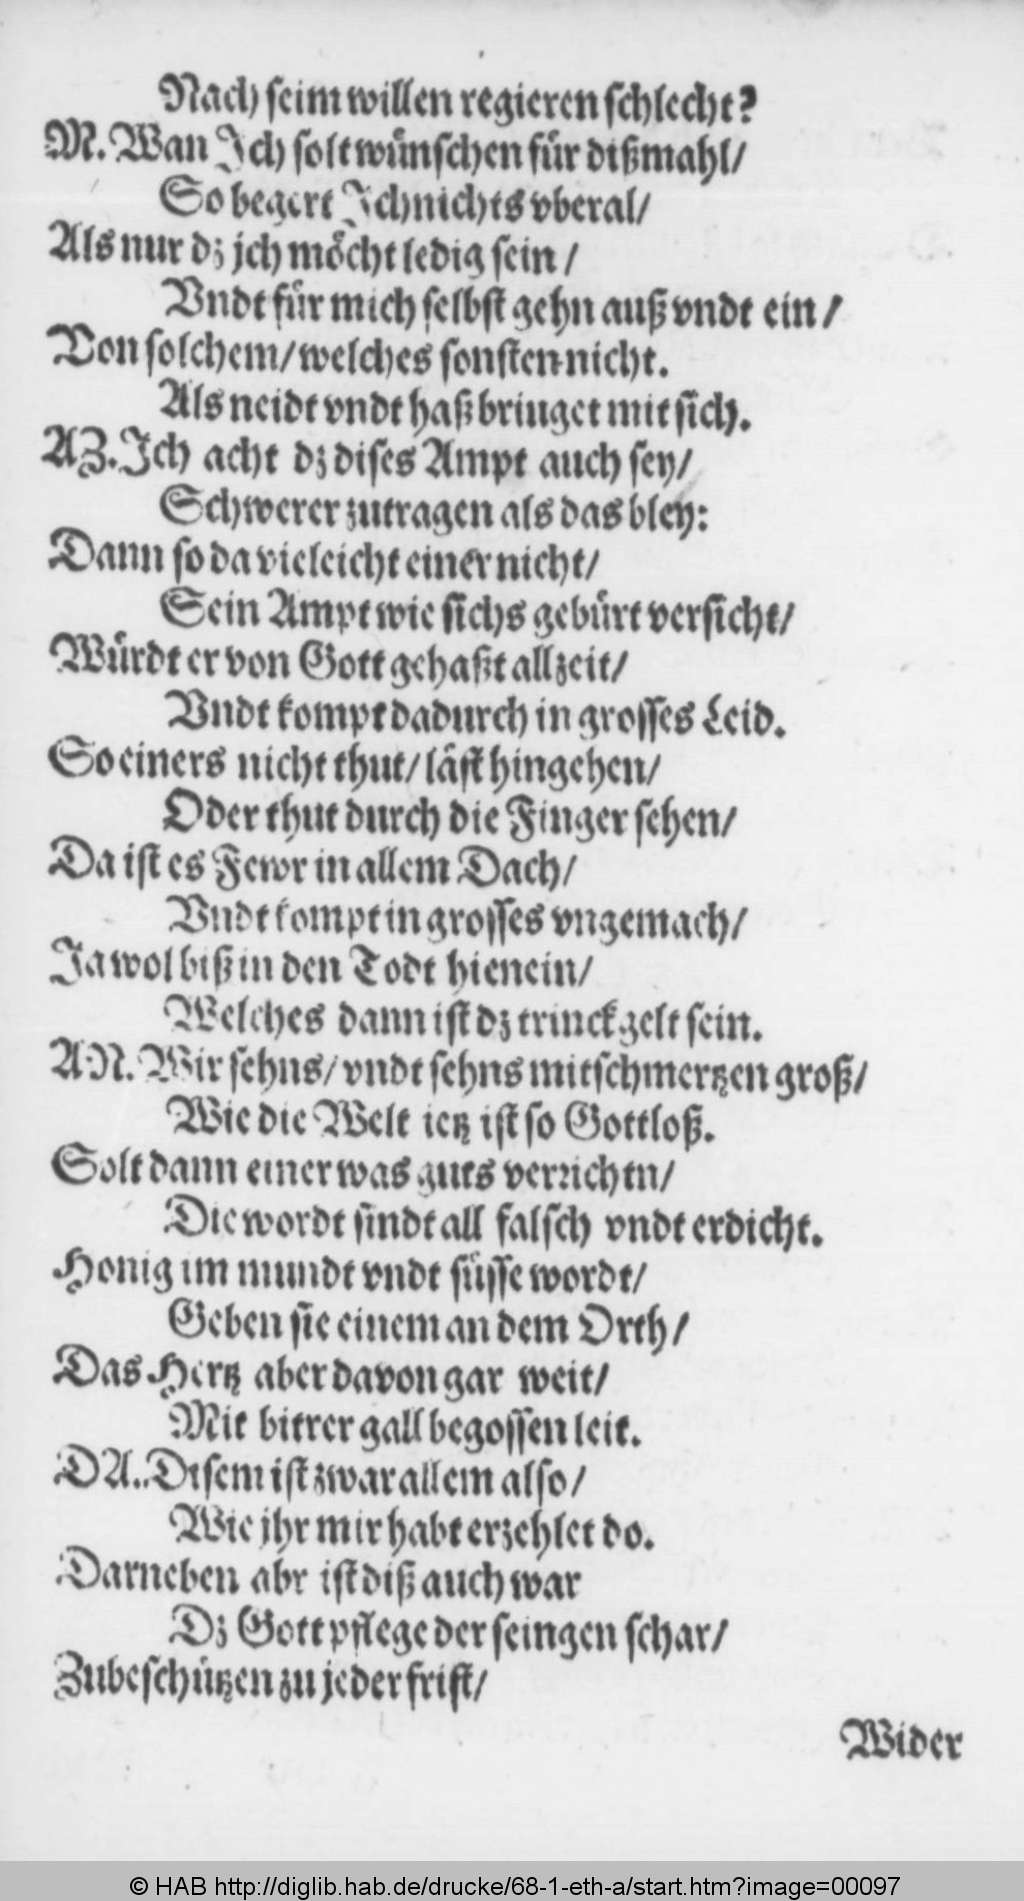 Nach seim willen regieren schlecht?
M. Wan Ich solt wünschen für dißmahl/
So begert Ich nichts vberal/
Als nur dz jch möcht ledig sein/
Vndt für mich selbst gehn auß vndt ein/
Von solchem/ welches sonsten nicht.
Als neidt vndt haß bringet mit sich.
AZ. Ich acht dz dises Ampt auch sey/
Schwerer zutragen als das bley:
Dann so da vieleicht einer nicht/
Sein Ampt wie sichs gebürt versicht/
Würdt er von Gott gehaßt allzeit/
Vndt kompt dadurch in grosses Leid.
So einers nicht thut/ läst hingehen/
Oder thut durch die Finger sehen/
Da ist es Fewr in allem Dach/
Vndt kompt in grosses vngemach/
Ja wol biß in den Todt hienein/
Welches dann ist dz trinckgelt sein.
AN. Wir sehns/ vndt sehns mit schmertzen groß/
Wie die Welt ietz ist so Gottloß.
Solt dann einer was guts verrichtn/
Die wordt sindt all falsch vndt erdicht.
Honig im mundt vndt süsse wordt/
Geben sie einem an dem Orth/
Das Hertz aber davon gar weit/
Mit bitrer gall begossen leit.
DA. Disem ist zwar allem also/
Wie jhr mir habt erzehlet do.
Darneben abr ist diß auch war
Dz Gott pflege der seingen schar/
Zubeschützen zu jeder frist/
Wider
© HAB http://diglib.hab.de/drucke/68-1-eth-a/start.htm?image=00097